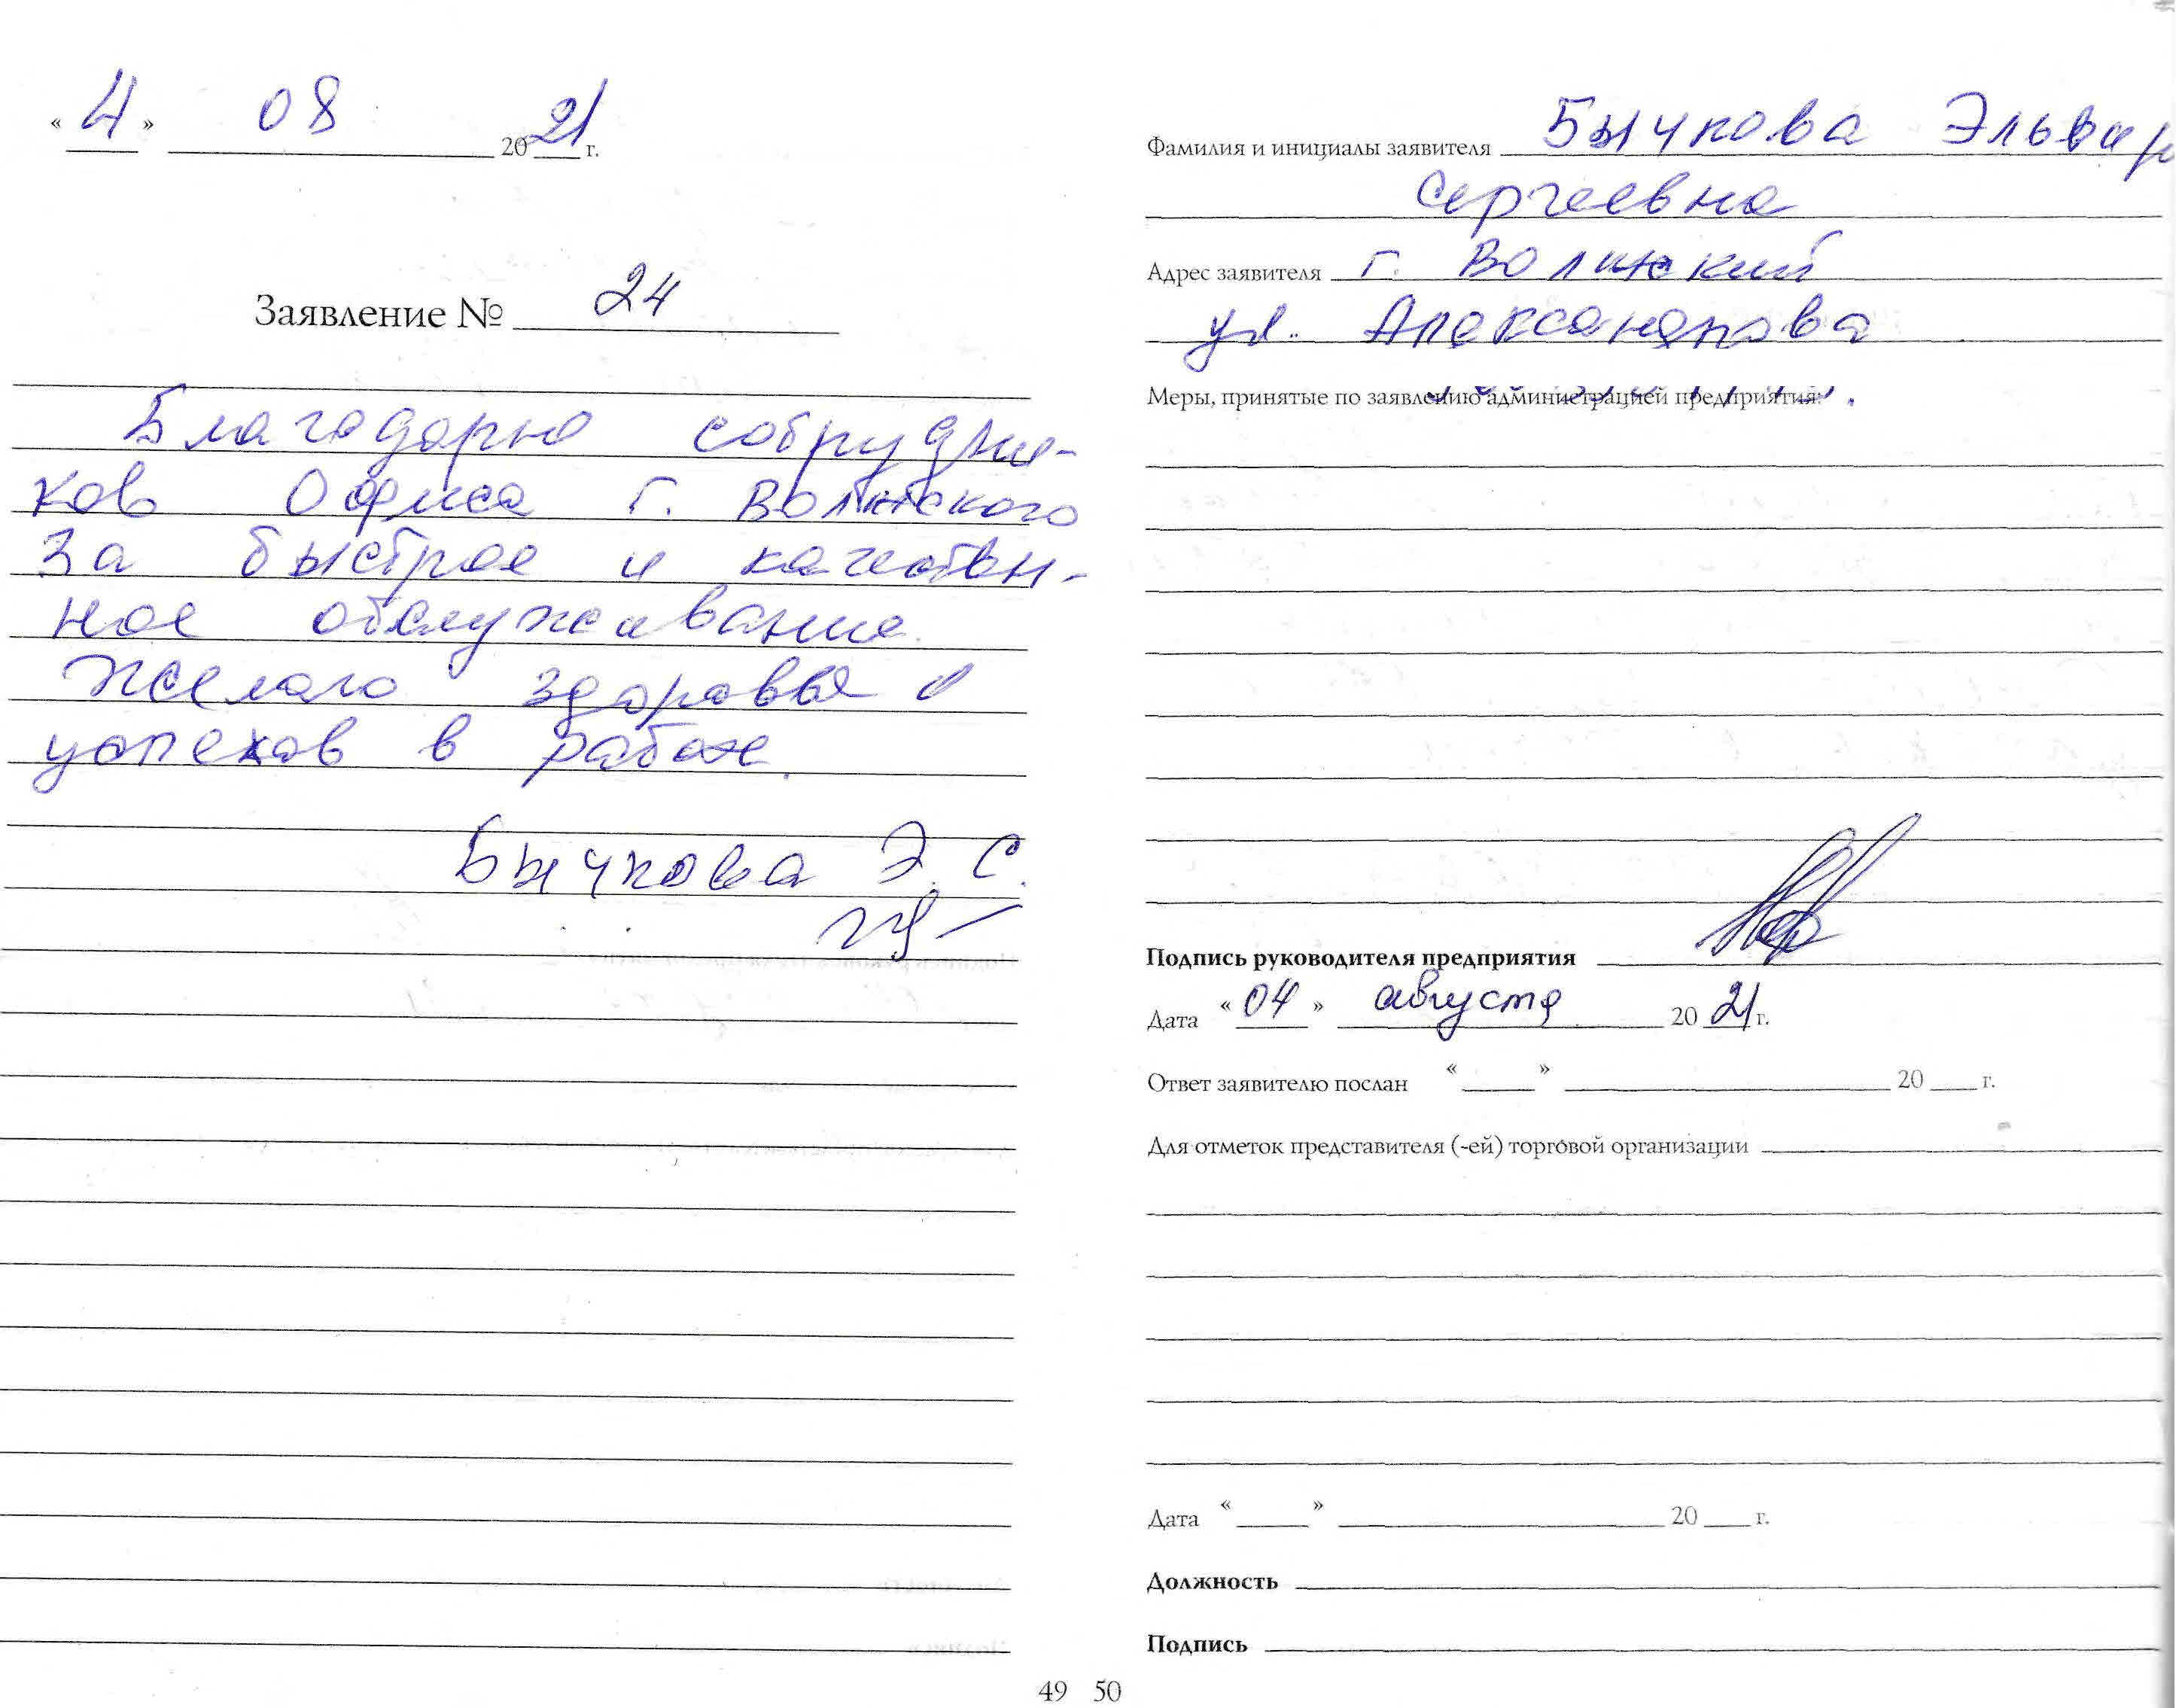 « 4 » 08 2021 г.
Заявление № 24
Благодарю сотрудни-
ков Офиса г. Волжского
за быстрое и качествен-
ное обслуживание.
Желаю здоровья и
успехов в работе.
Бычкова Э. С.
Фамилия и инициалы заявителя Бычкова Эльвир
Сергеевна
Адрес заявителя г. Волжский
ул. Александрова
Меры, принятые по заявлению администрацией предприятия:
Подпись руководителя предприятия
Дата « 04 » августа 20 21 г.
Ответ заявителю послан « » 20 г.
Для отметок представителя (-ей) торговой организации
Дата « » 20 г.
Должность
Подпись
49 50